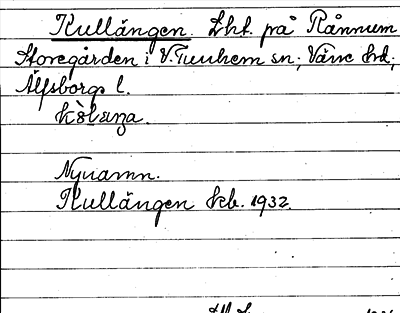 Kullängen. Lht. på Rånnum
Storegården i V. Tunhem sn; Väne hd;
Älfsborgs l.
Nynamn.
Kullängen kb. 1932.